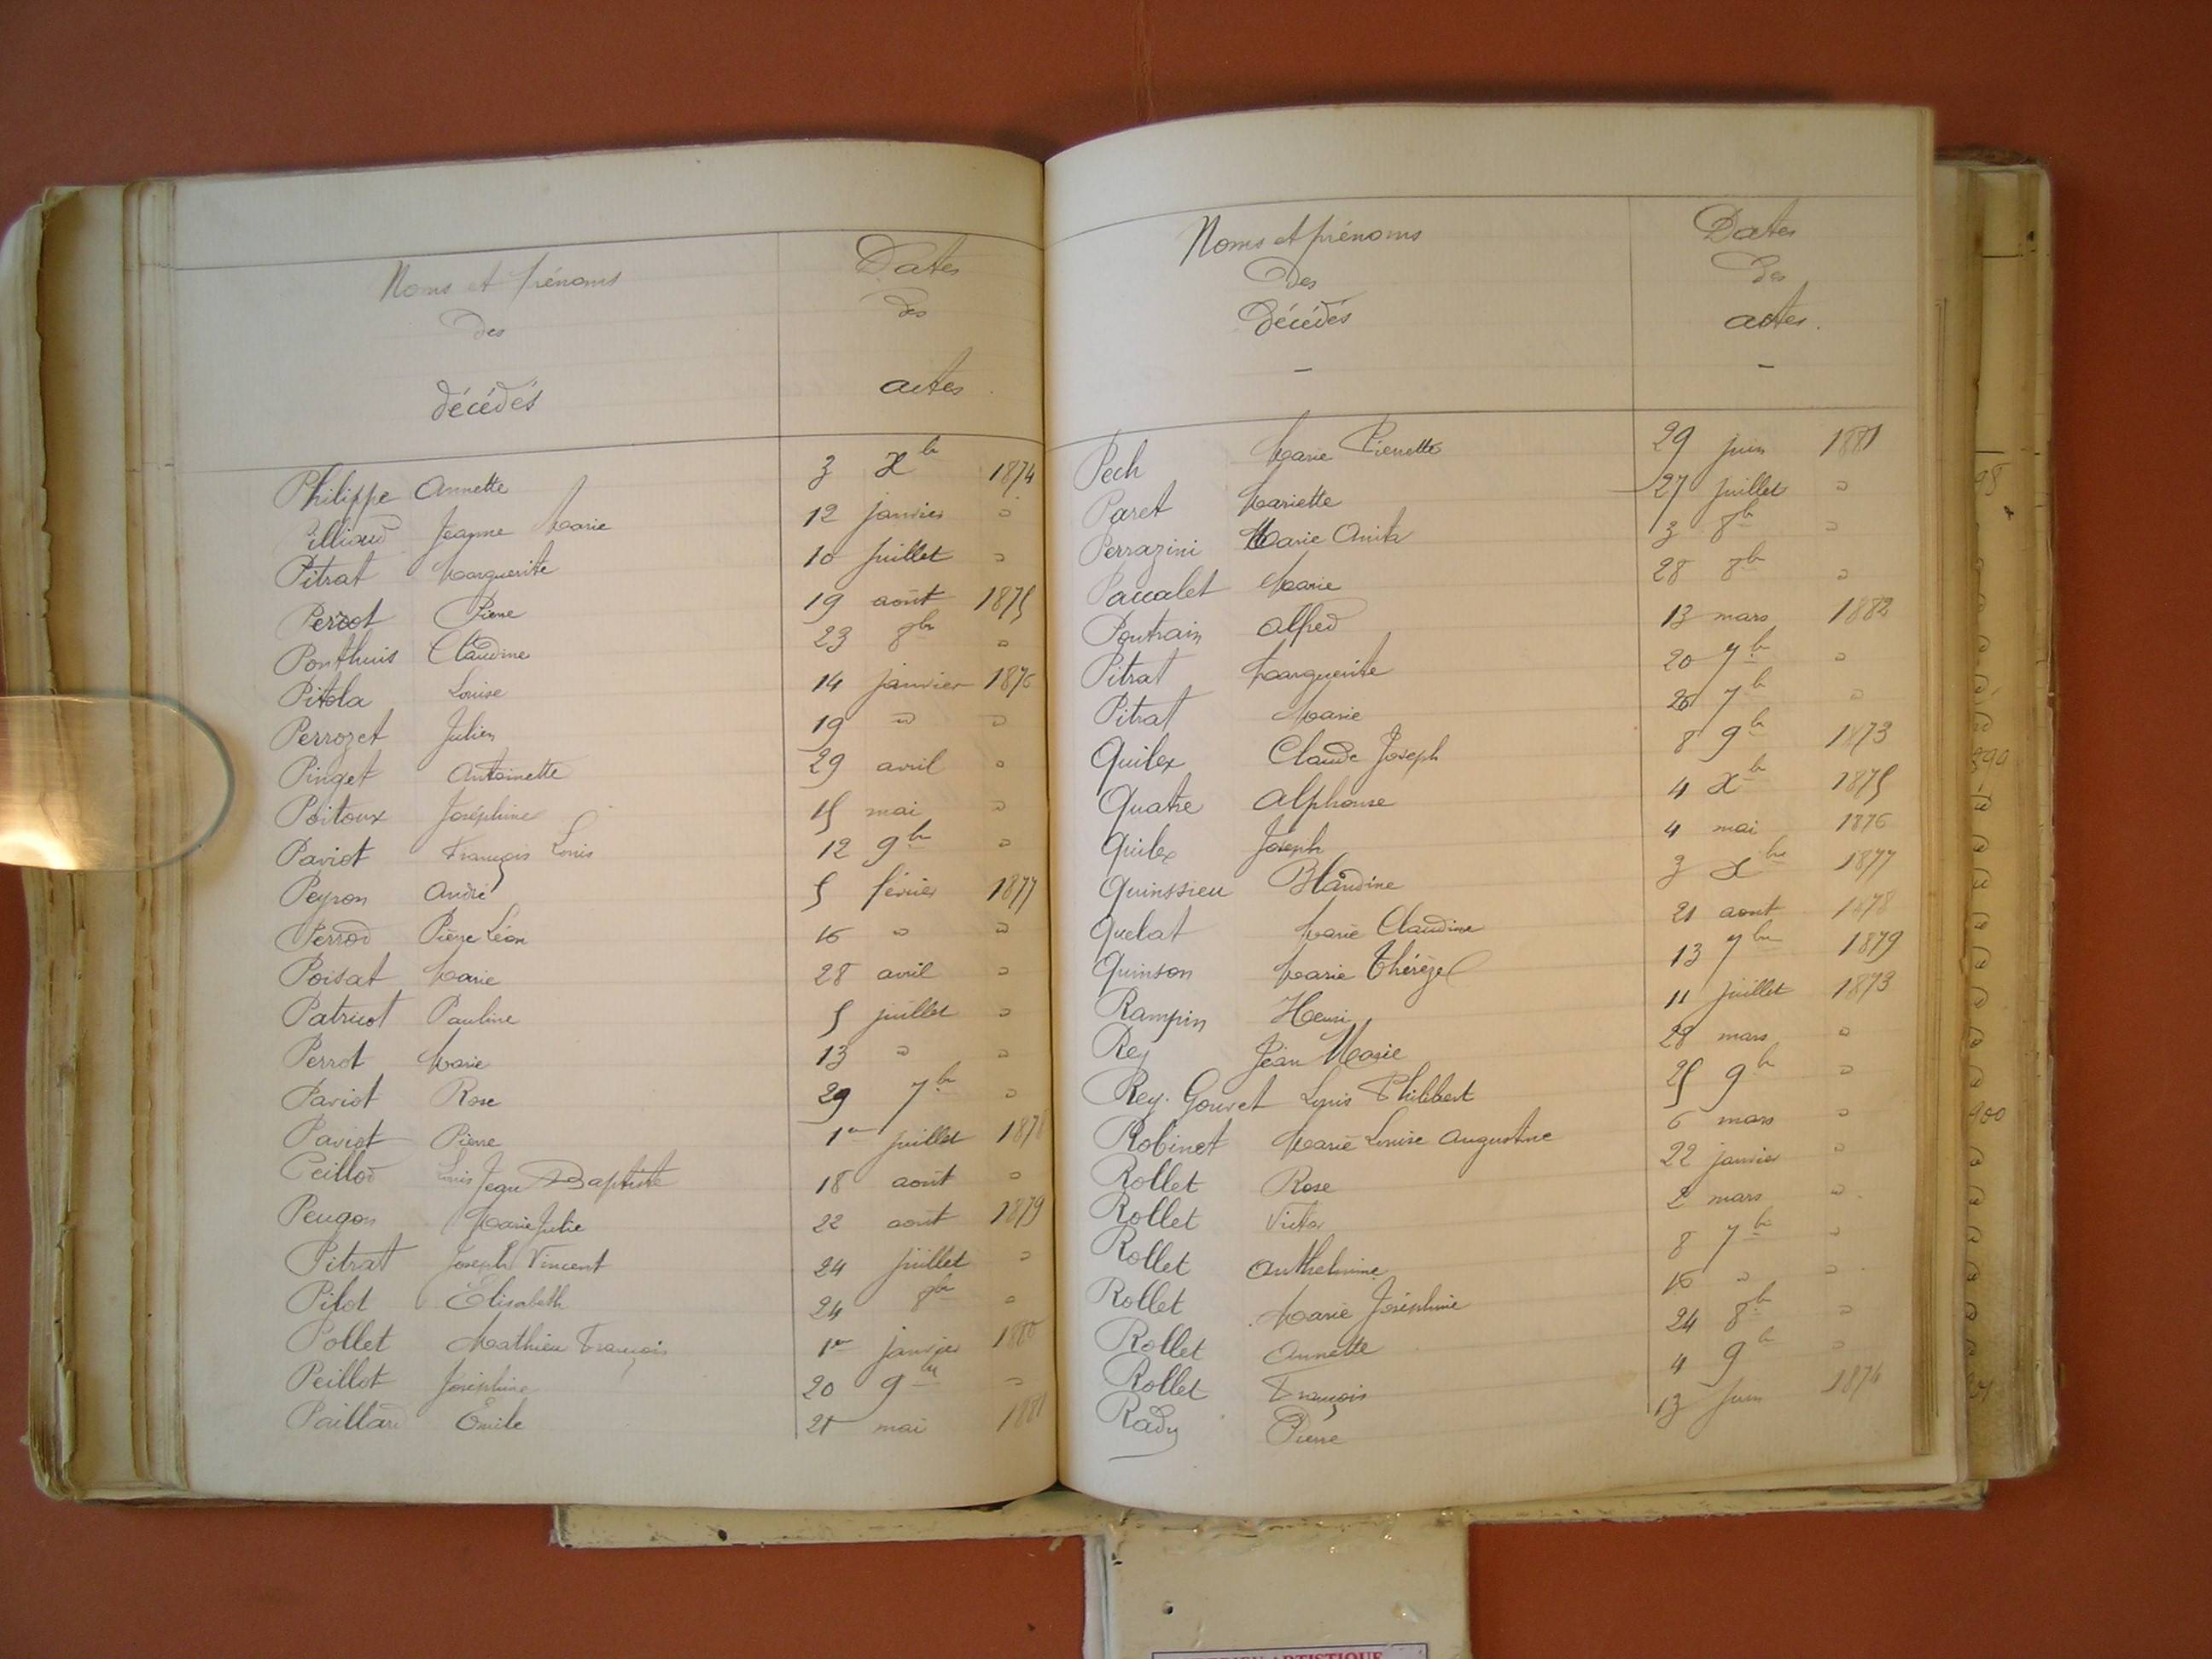 Noms et prénoms
des
décédés
Dates
des
actes
Philippe Annette 3 Xbr 1874
Pilliaud Jeanne Marie 12 janvier "
Pitrat Marguerite 10 juillet "
Perrot Pierre 19 août 1875
Ponthuis Claudine 23 8br "
Pitola Louise 14 janvier 1876
Perrozet Julien 19 " "
Pinget Antoinette 29 avril "
Poitoux Joséphine 15 mai "
Paviot François Louis 12 9br "
Peyron André 5 février 1877
Perrod Pierre Léon 16 " "
Poisat Marie 28 avril "
Patricot Pauline 5 juillet "
Perrot Marie 13 " "
Paviot Rose 29 7br "
Paviot Pierre 1er juillet 1878
Peillod Louis Jean Baptiste 18 août "
Peugon Marie Julie 22 août 1879
Pitrat Joseph Vincent 24 juillet "
Pilot Elisabeth 24 8br "
Pollet Mathieu François 1er janvier 1880
Peillot Joséphine 20 9br "
Paillard Emile 21 mai 1881
Noms et prénoms
des
décédés
-
Dates
des
actes.
-
Pech Marie Pierrette 29 juin 1881
Paret Mariette 27 juillet "
Perrazini Marie Anita 3 8br "
Paccalet Marie 28 8br "
Poutrain Alfred 13 mars 1882
Pitrat Marguerite 20 7br "
Pitrat Marie 26 7br "
Quilex Claude Joseph 8 9br 1873
Quatre Alphonse 4 Xbr 1875
Quilex Joseph 4 mai 1876
Quinssieu Blandine 3 Xbre 1877
Quelat Marie Claudine 21 aout 1878
Quinson Marie Thérèze 13 7bre 1879
Rampin Henri 11 juillet 1873
Rey Jean Marie 28 mars "
Rey-Gouvet Louis Philibert 25 9br "
Robinet Marie Louise Augustine 6 mars "
Rollet Rose 22 janvier "
Rollet Victor 2 mars "
Rollet Anthelmine 8 7br "
Rollet Marie Joséphine 16 " "
Rollet Annette 24 8br "
Rollet François 4 9br "
Rady Pierre 13 juin 1874